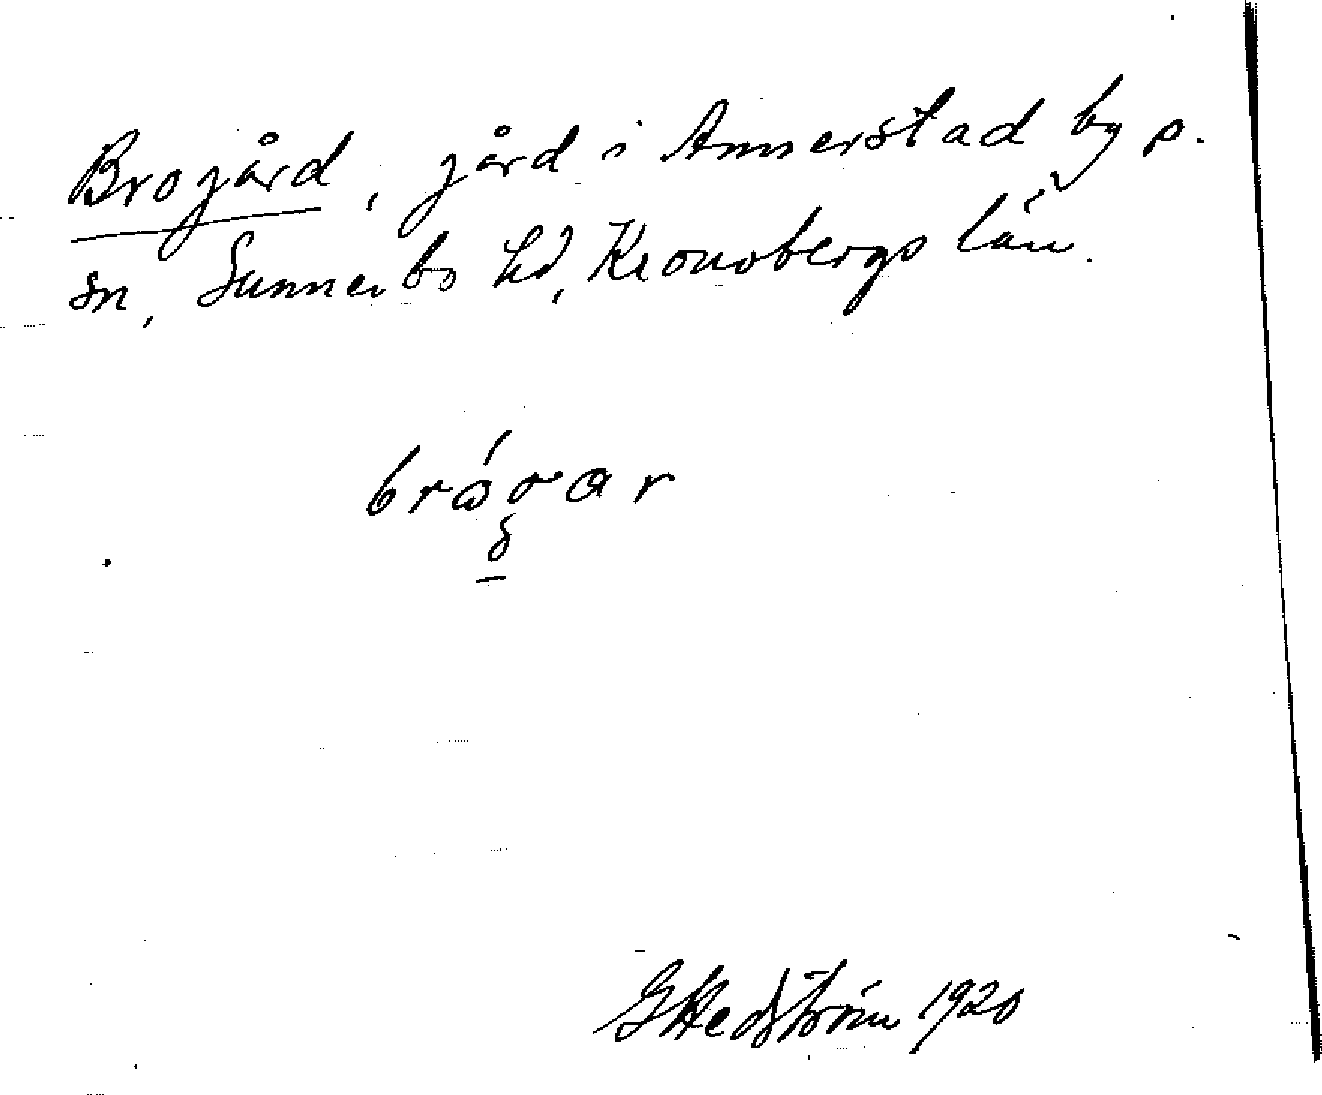 Brogård, gård i Annerstad by o.
sn, Sunnerbo hd, Kronobergs län.
G Hedström 1920